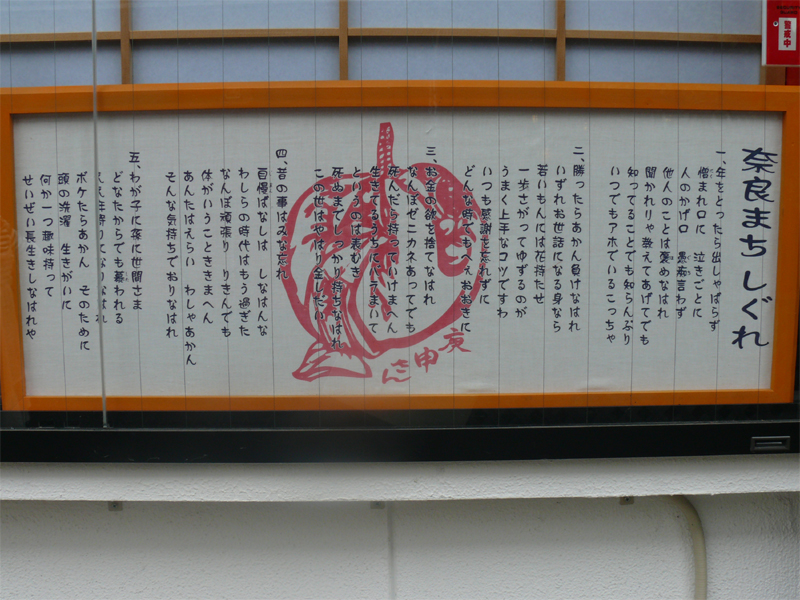 奈良まちしぐれ
一、年をとったら出しゃばらず
憎まれ口に 泣きごとに
人のかげ口 愚痴言わず
他人のことは褒めなはれ
聞かれりゃ教えてあげてでも
知ってることでも知らんぷり
いつでもアホでいるこっちゃ
二、勝ったらあかん負けなはれ
いずれお世話になる身なら
若いもんには花持たせ
一歩さがってゆずるのが
うまく上手なコツですわ
いつも感謝を忘れずに
どんな時でもへえおおきに
三、お金の欲を捨てなはれ
なんぼゼニカネあってでも
死んだら持っていけまへん
生きてるうちにバラまいて
というのは表むき
死ぬまでしっかり持ちなはれ
この世はやはり金しだい
四、昔の事はみな忘れ
自慢ばなしは しなはんな
わしらの時代はもう過ぎた
なんぼ頑張り りきんでも
体がいうことききまへん
あんたはえらい わしゃあかん
そんな気持ちでおりなはれ
五、わが子に孫に世間さま
どなたからでも慕われる
ええ年寄りになりなはれ
ボケたらあかん そのために
頭の洗濯 生きがいに
何か一つ趣味持って
せいぜい長生きしなはれや
庚申さん
警戒中